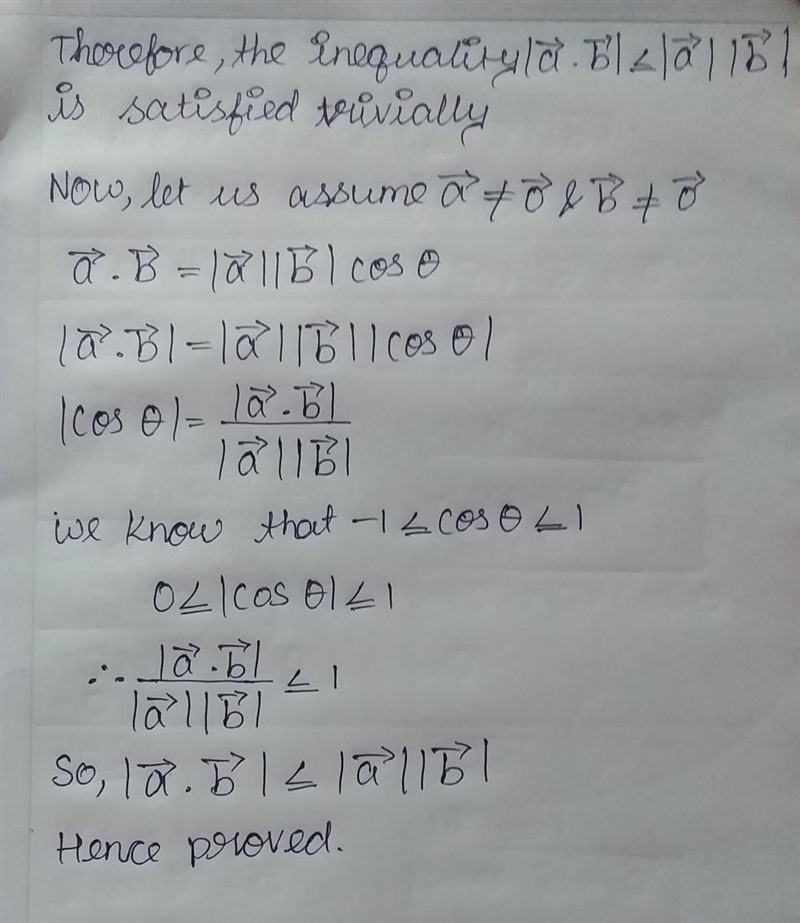 Therefore, the inequality |a⃗ . b⃗| ≤ |a⃗| |b⃗|
is satisfied trivially
Now, let us assume a⃗ ≠ 0⃗ & b⃗ ≠ 0⃗
a⃗ . b⃗ = |a⃗||b⃗| cos θ
|a⃗ . b⃗| = |a⃗||b⃗||cos θ|
|cos θ| = |a⃗ . b⃗| / |a⃗||b⃗|
we know that -1 ≤ cos θ ≤ 1
0 ≤ |cos θ| ≤ 1
∴ |a⃗ . b⃗| / |a⃗||b⃗| ≤ 1
So, |a⃗ . b⃗| ≤ |a⃗||b⃗|
Hence proved.